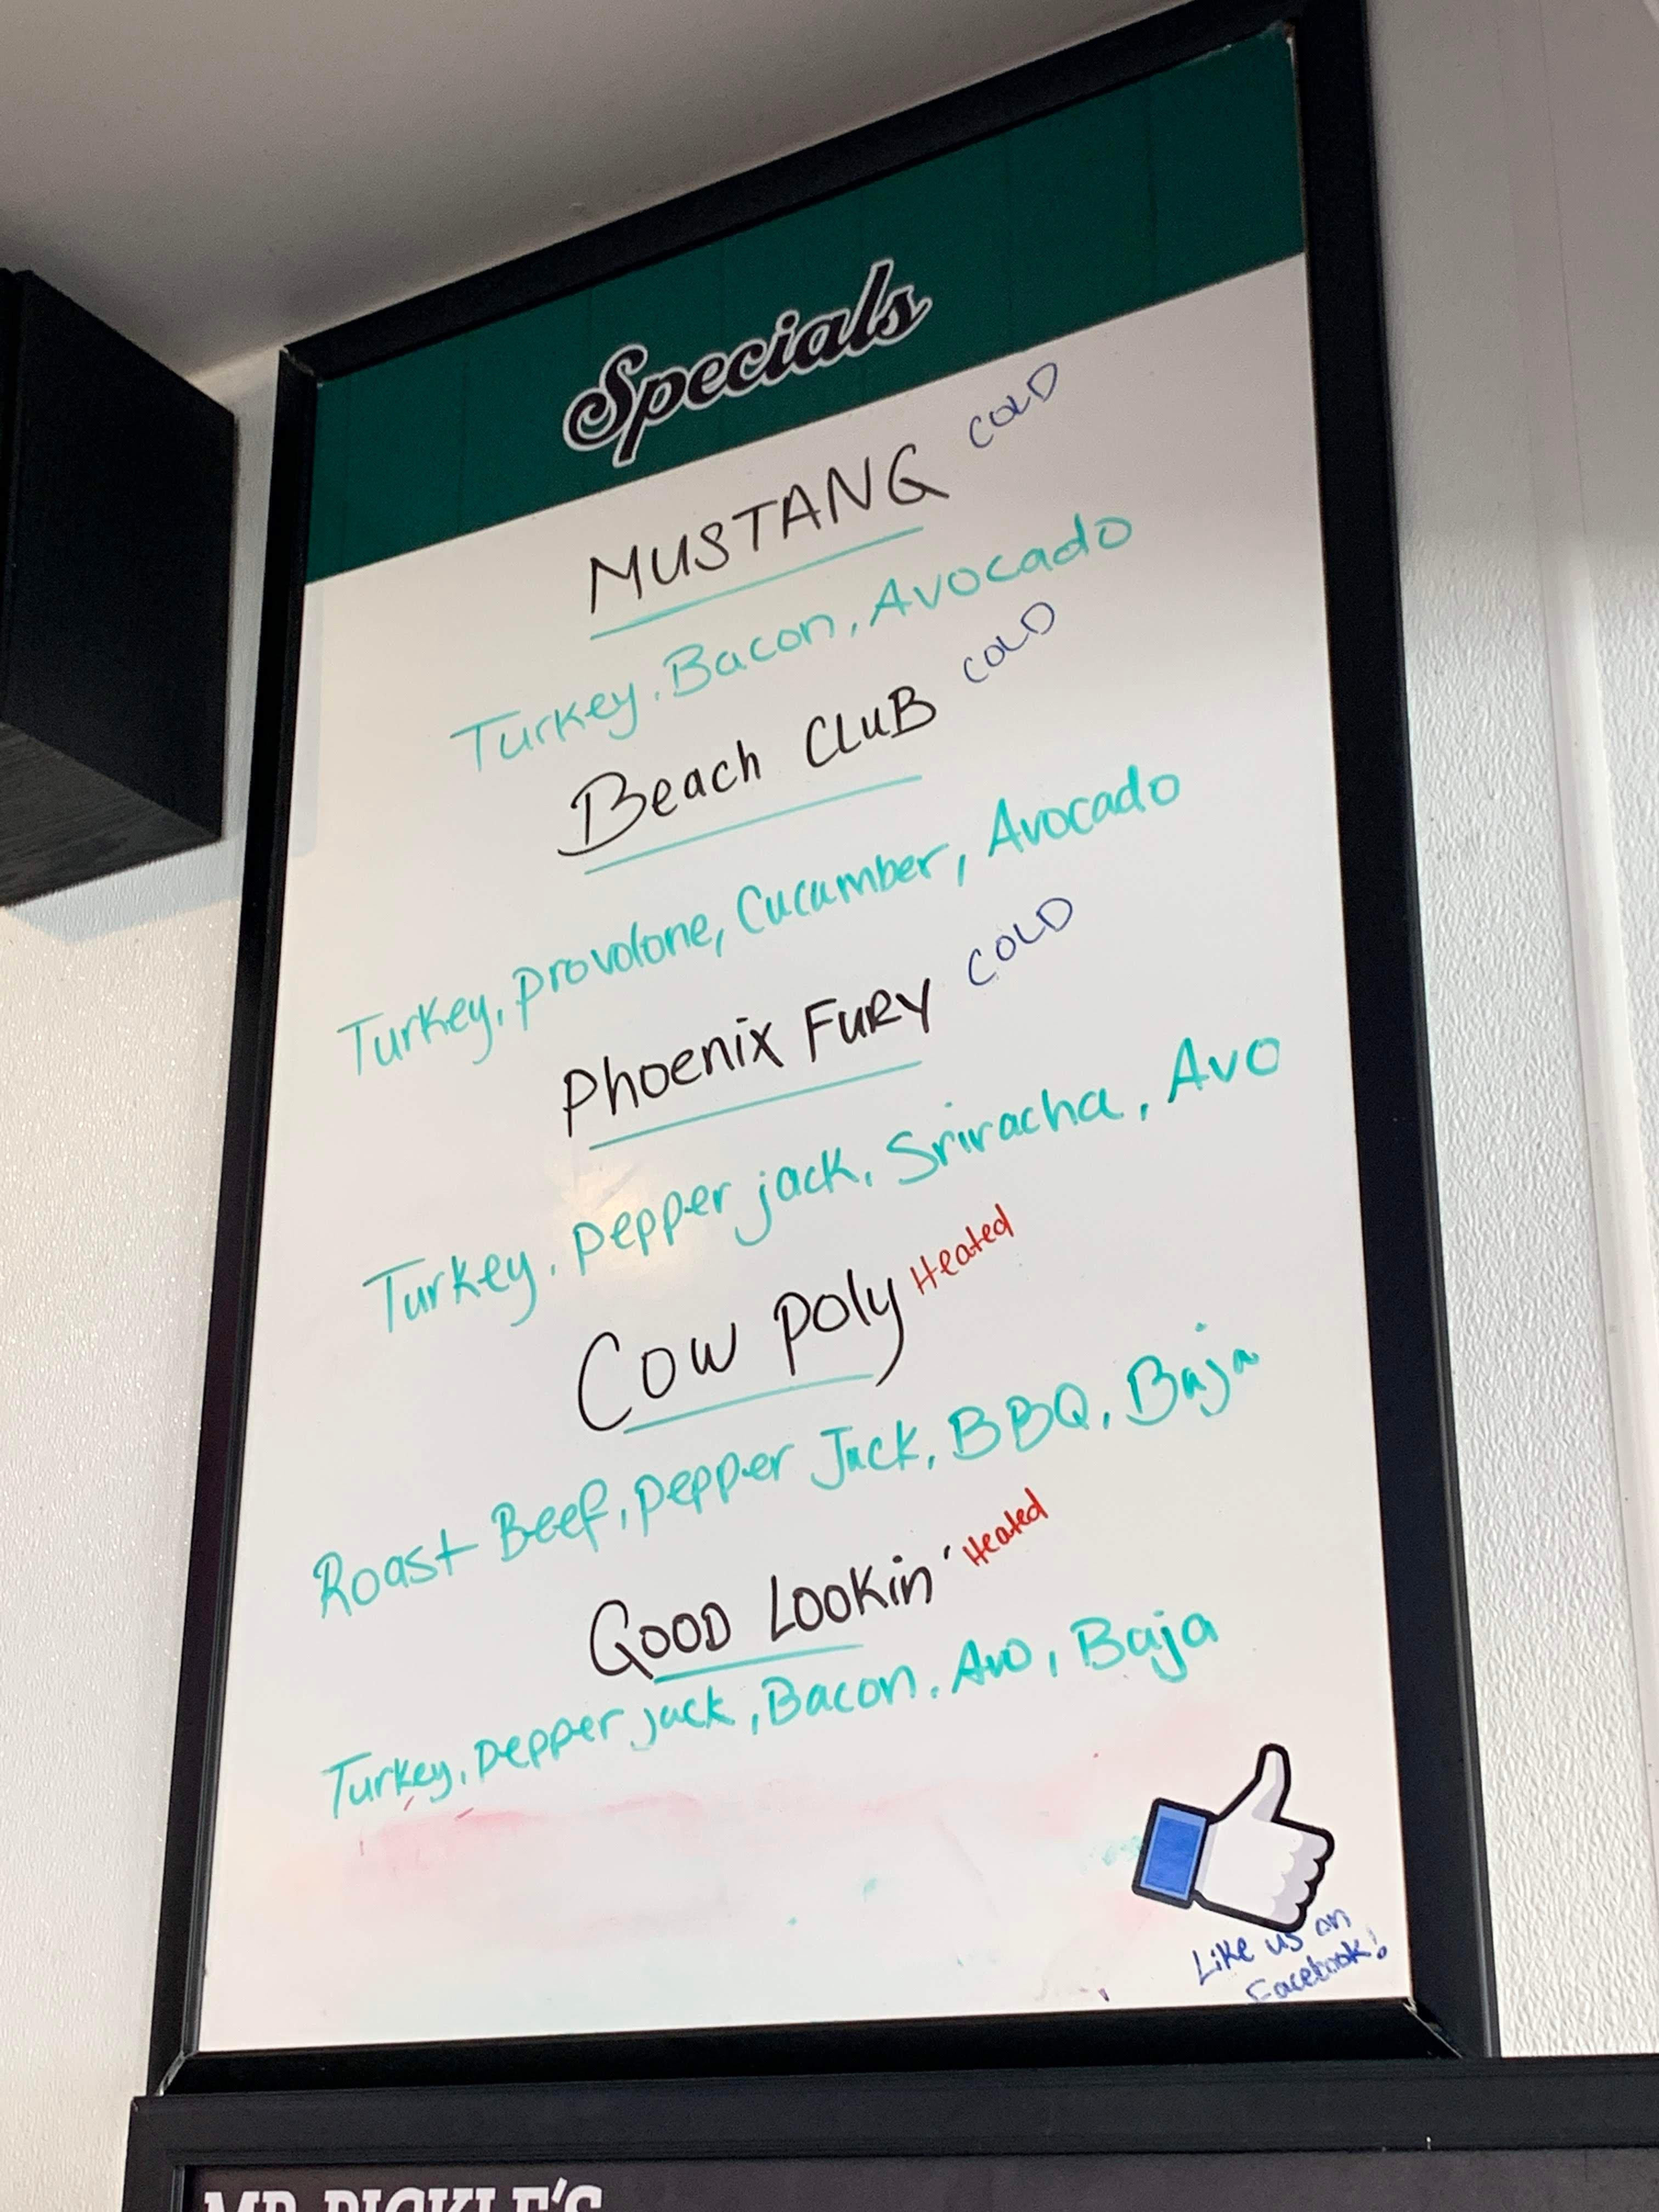 Specials
MUSTANG COLD
Turkey, Bacon, Avocado
Beach CLuB COLD
Turkey, provolone, Cucumber, Avocado
Phoenix FuRY COLD
Turkey, pepper jack, Sriracha, Avo
Cow poly Heated
Roast Beef, pepper Jack, BBQ, Baja
GOOD LOOKin' Heated
Turkey, pepper jack, Bacon, Avo, Baja
Like us on
Facebook!
MR. PICKLE'S